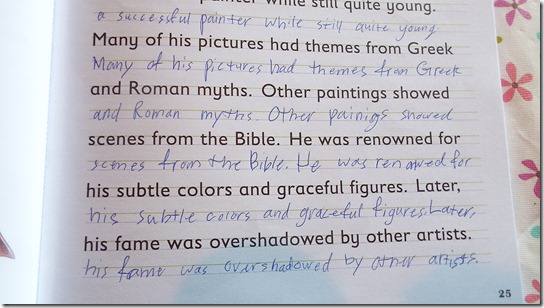 painter while still quite young.
a successful painter while still quite young.
Many of his pictures had themes from Greek
Many of his pictures had themes from Greek
and Roman myths. Other paintings showed
and Roman myths. Other painings showed
scenes from the Bible. He was renowned for
scenes from the Bible. He was renowed for
his subtle colors and graceful figures. Later,
his subtle colors and graceful figures. Later,
his fame was overshadowed by other artists.
his fame was overshadowed by other artists.
25